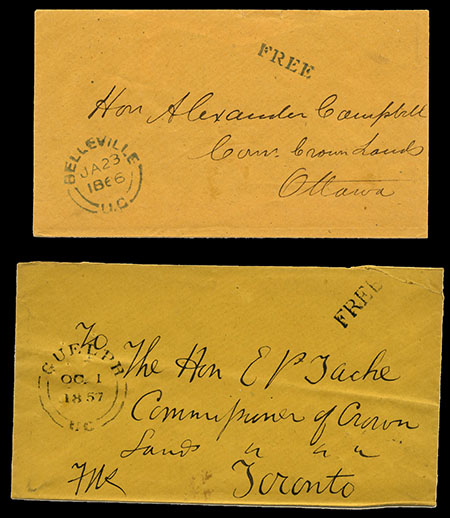 FREE
Hon Alexander Campbell
Com. Crown Lands
Ottawa
BELLEVILLE
JA 23
1866
U.C
FREE
To
The Hon E P Tache
Commissioner of Crown
Lands " " "
Toronto
GUELPH
OC. 1
1857
U C